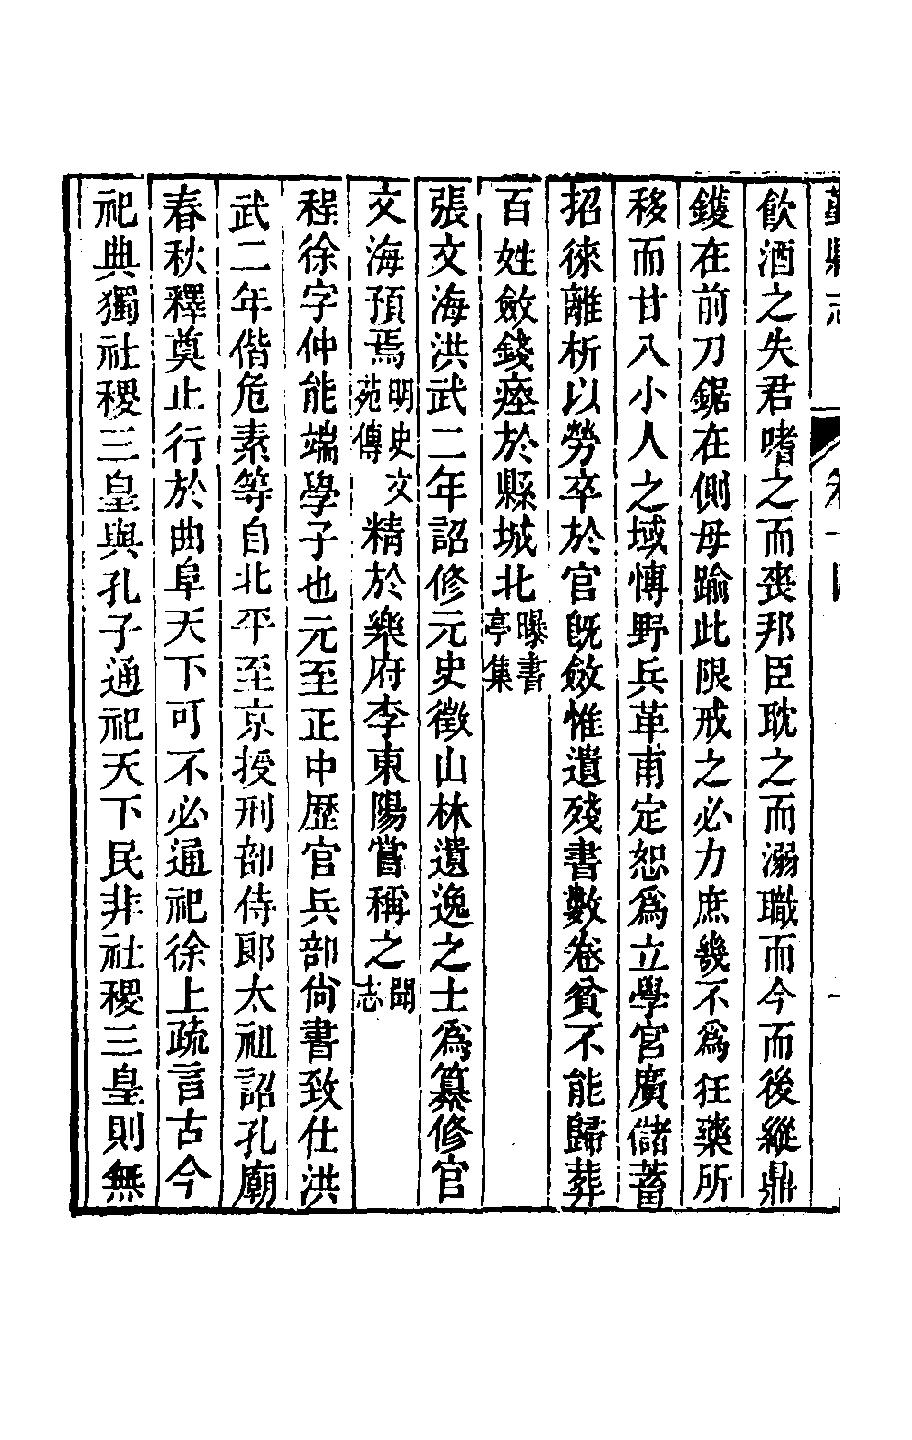 鄞縣志
飲酒之失君嗜之而喪邦臣耽之而溺職而今而後縱鼎
鑊在前刀鋸在側毋踰此限戒之必力庶幾不爲狂藥所
移而甘入小人之域慱野兵革甫定恕爲立學官廣儲蓄
招徠離析以勞卒於官旣斂惟遺殘書數卷貧不能歸葬
百姓斂錢瘞於縣城北曝書亭集
張文海洪武二年詔修元史徵山林遺逸之士爲纂修官
文海預焉明史文苑傳精於樂府李東陽嘗稱之聞志
程徐字仲能端學子也元至正中歷官兵部尙書致仕洪
武二年偕危素等自北平至京授刑部侍郞太祖詔孔廟
春秋釋奠止行於曲阜天下可不必通祀徐上疏言古今
祀典獨社稷三皇與孔子通祀天下民非社稷三皇則無